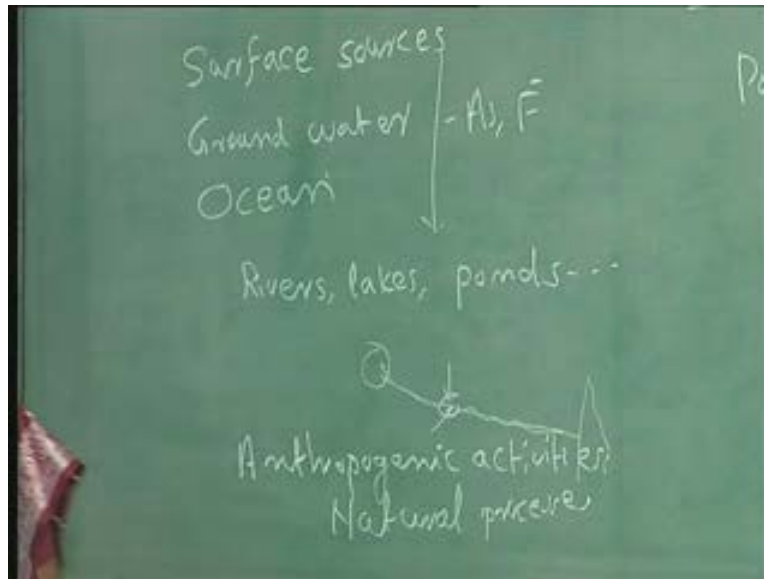 Surface sources
Ground water - As, F̄
Ocean
Rivers, lakes, ponds---
Anthropogenic activities
Natural
Po